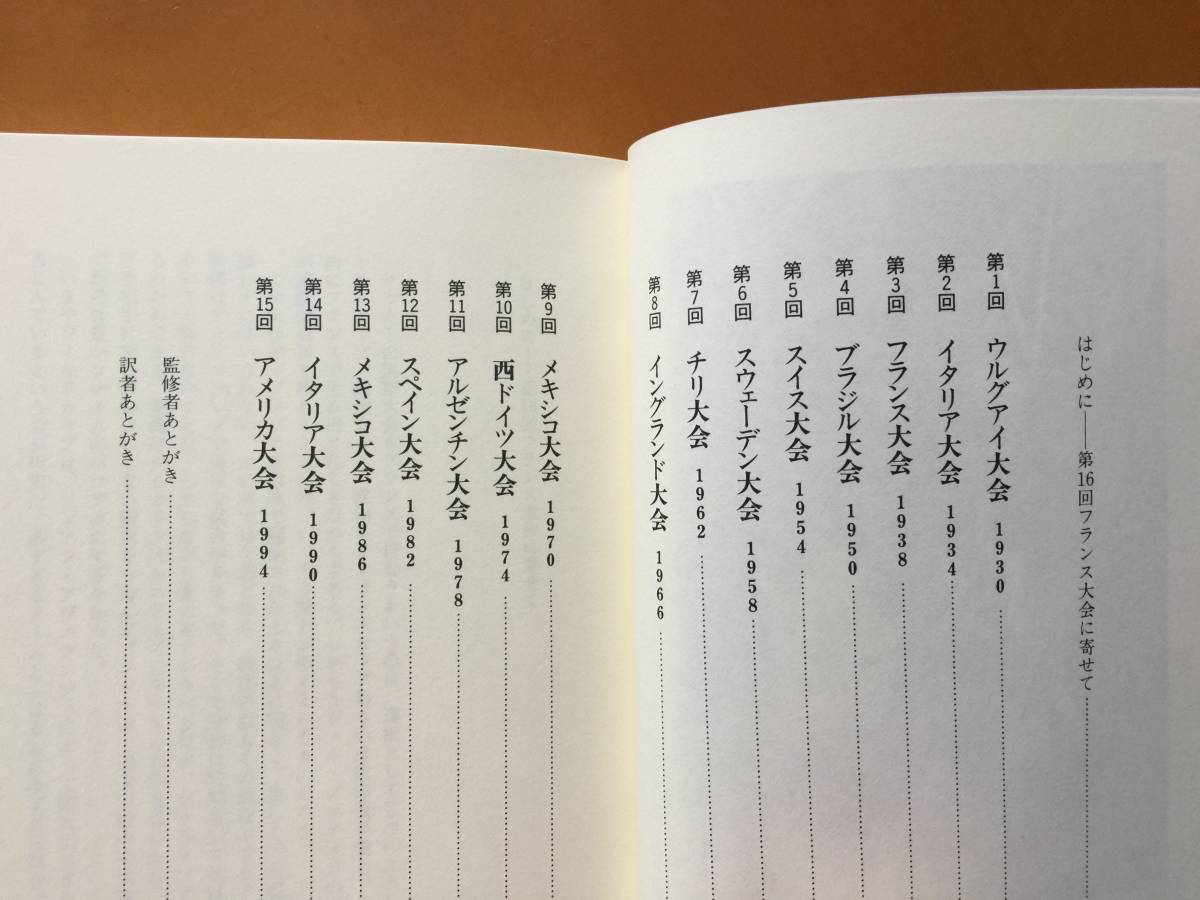 はじめに――第16回フランス大会に寄せて
第1回 ウルグアイ大会 1930
第2回 イタリア大会 1934
第3回 フランス大会 1938
第4回 ブラジル大会 1950
第5回 スイス大会 1954
第6回 スウェーデン大会 1958
第7回 チリ大会 1962
第8回 イングランド大会 1966
第9回 メキシコ大会 1970
第10回 西ドイツ大会 1974
第11回 アルゼンチン大会 1978
第12回 スペイン大会 1982
第13回 メキシコ大会 1986
第14回 イタリア大会 1990
第15回 アメリカ大会 1994
監修者あとがき
訳者あとがき